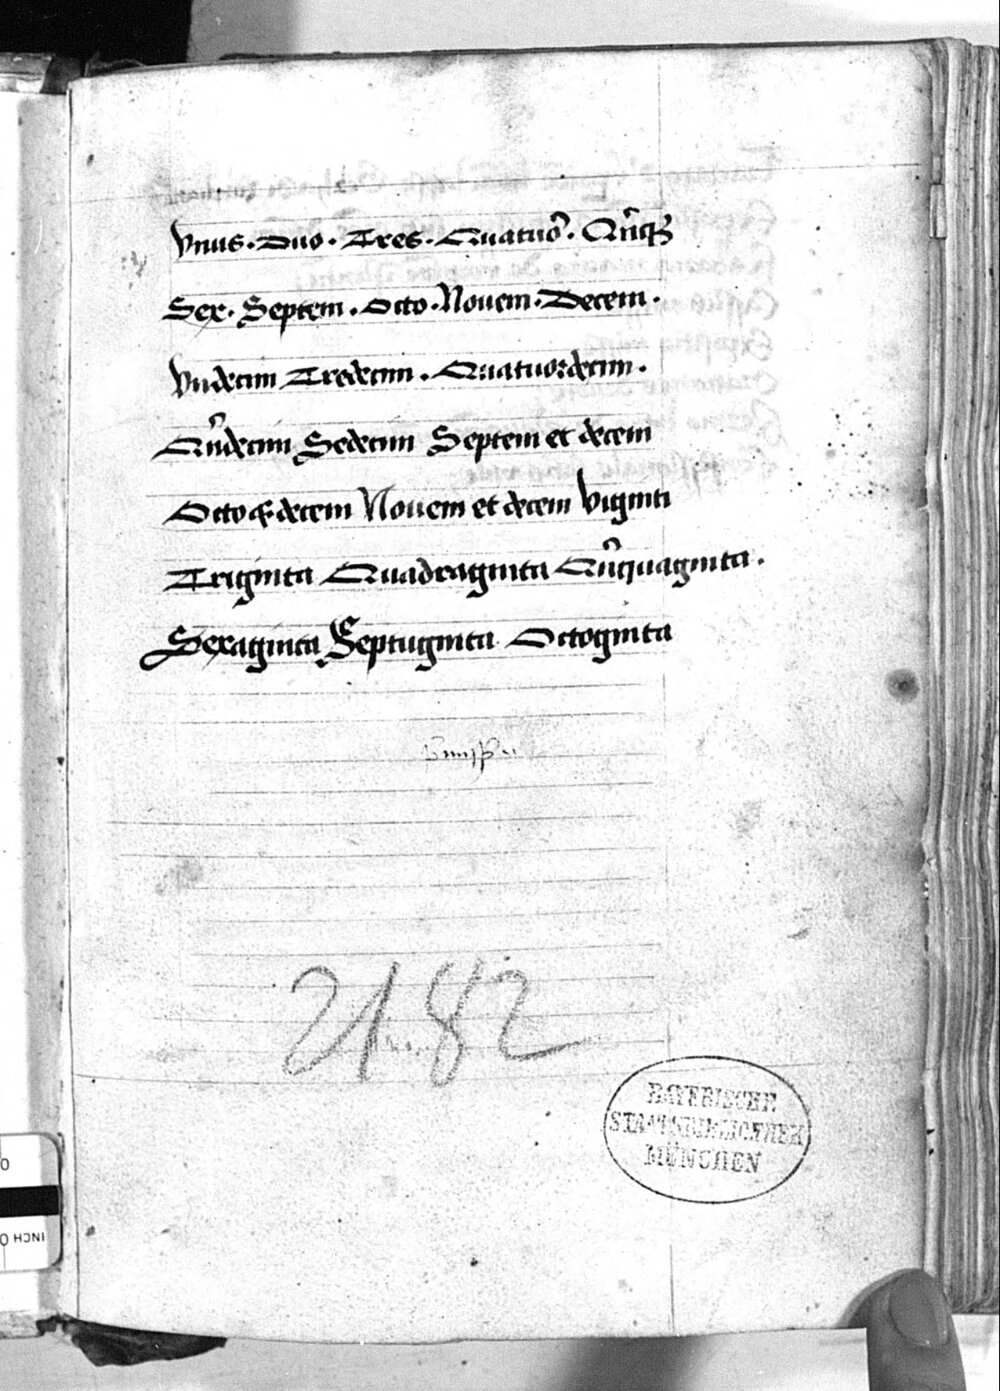 Vnus · Duo · Tres · Quatuor · Qūqȝ
Sex · Septem · Octo · Nouem · Decem ·
Vndecim Tredecim · Quatuordecim ·
Qūdecim Sedecim Septem et decem
Octo & decem Nouem et decem viginti
Triginta Quadraginta Qūquaginta ·
Sexaginta Septuginta Octoginta
2182
BAYERISCHE
STAATSBIBLIOTHEK
MÜNCHEN
0
INCH 0